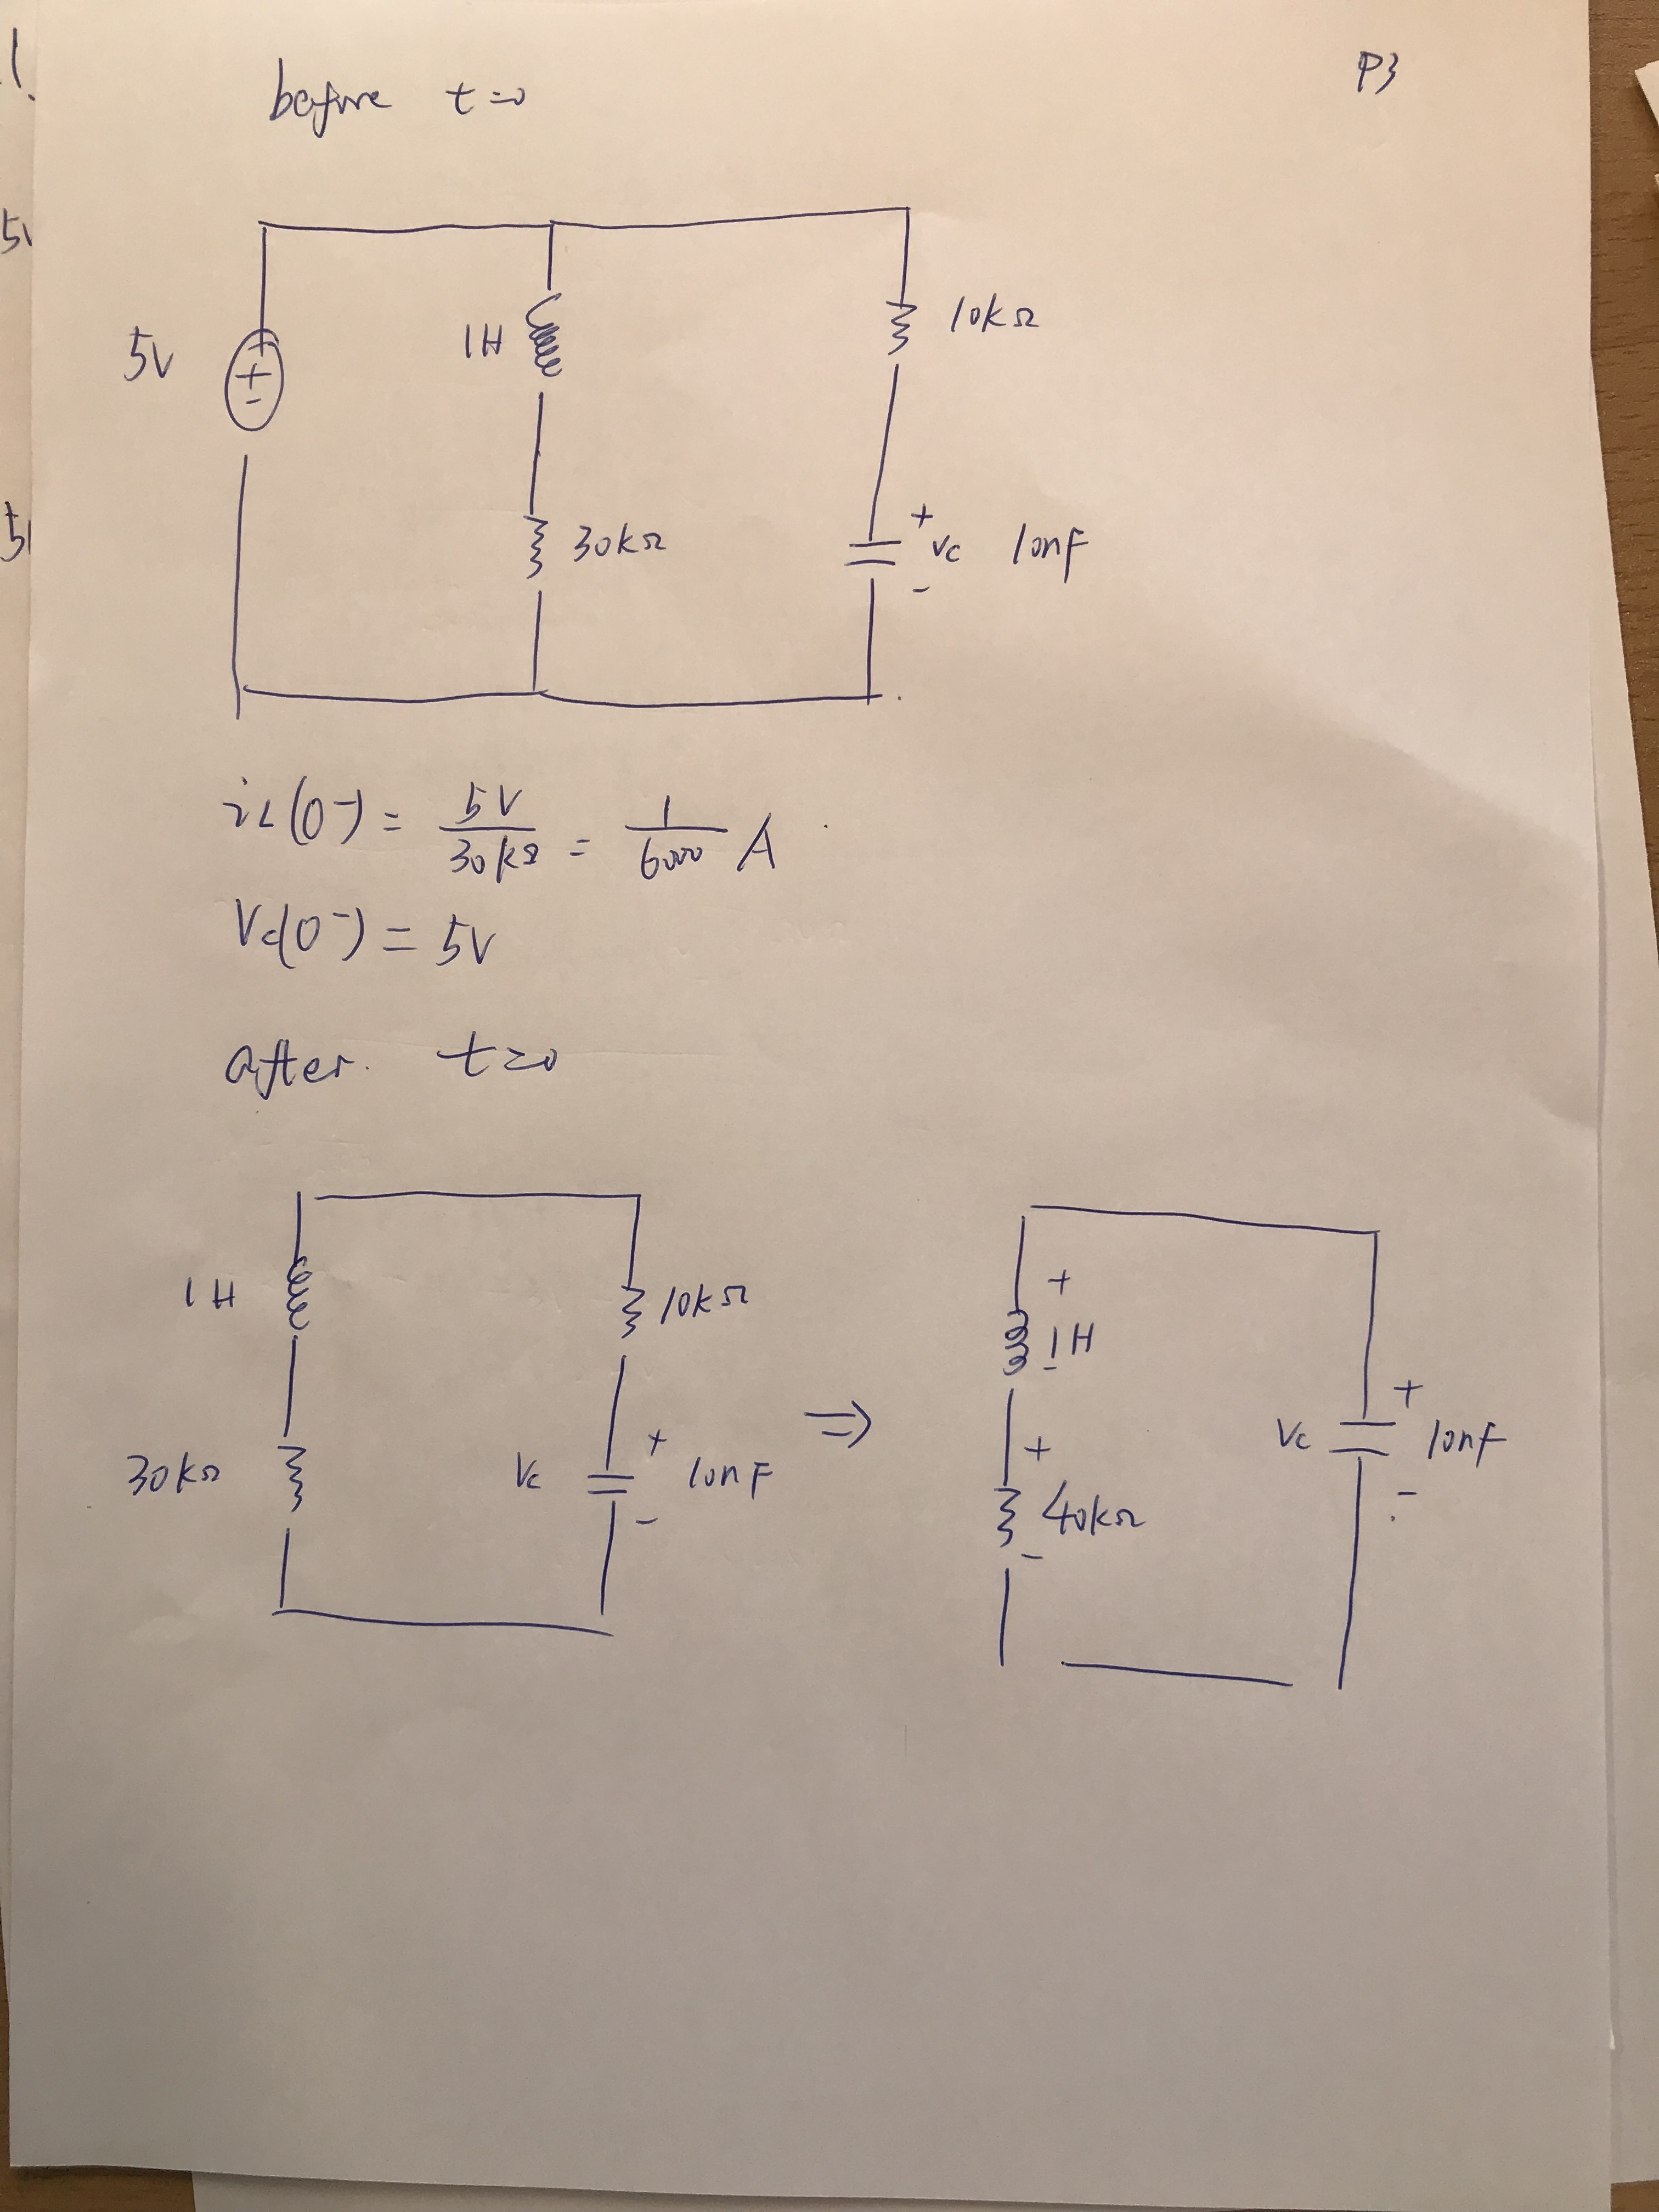 1.
5V
5
before t=0
P3
5V
+
-
1H
30kΩ
10kΩ
+
vc 10nF
-
iL(0-) = 5V/30kΩ = 1/6000 A
Vc(0-) = 5V
after. t=0
1H
30kΩ
10kΩ
+
Vc 10nF
-
⇒
+
1H
-
+
40kΩ
-
+
Vc 10nF
-